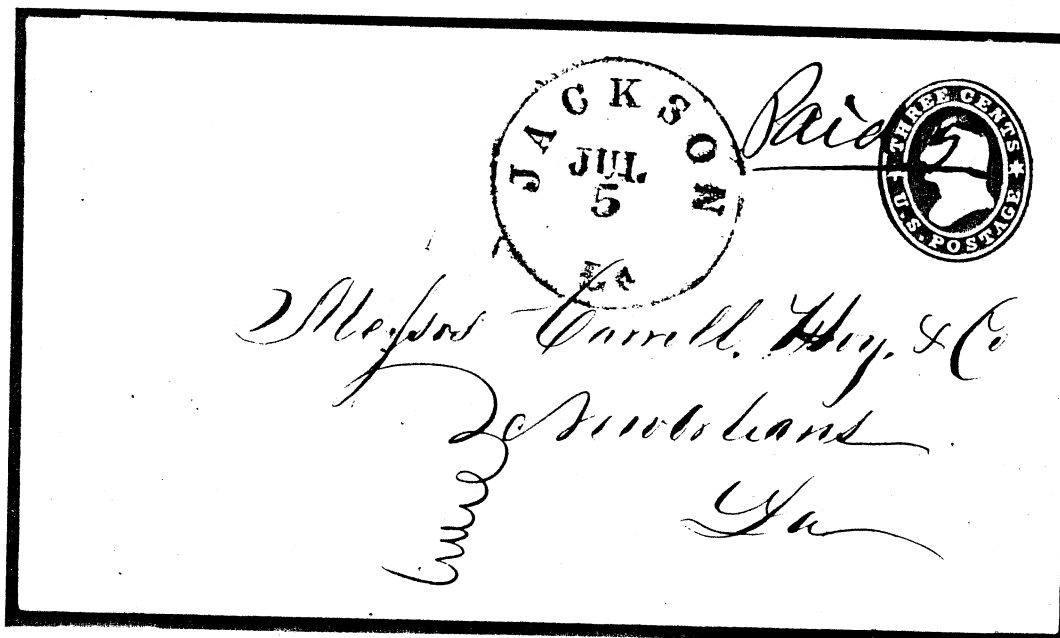 JACKSON
JUL
5
La
Paid 5
THREE CENTS
U.S. POSTAGE
Messrs Carrell, Hoy, & Co
New Orleans
La